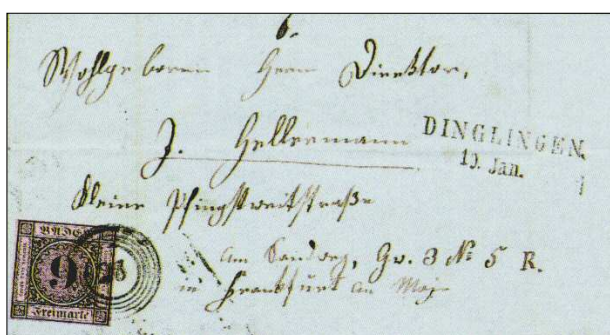 6.
Wohlgeboren Herrn Direktor,
J. Hellermann
DINGLINGEN.
19. Jan.
Kleine Pfingstweitstraße
am Sandweg, Gv. 3 № 5 R.
in Frankfurt am
BADEN
9
Freimarke